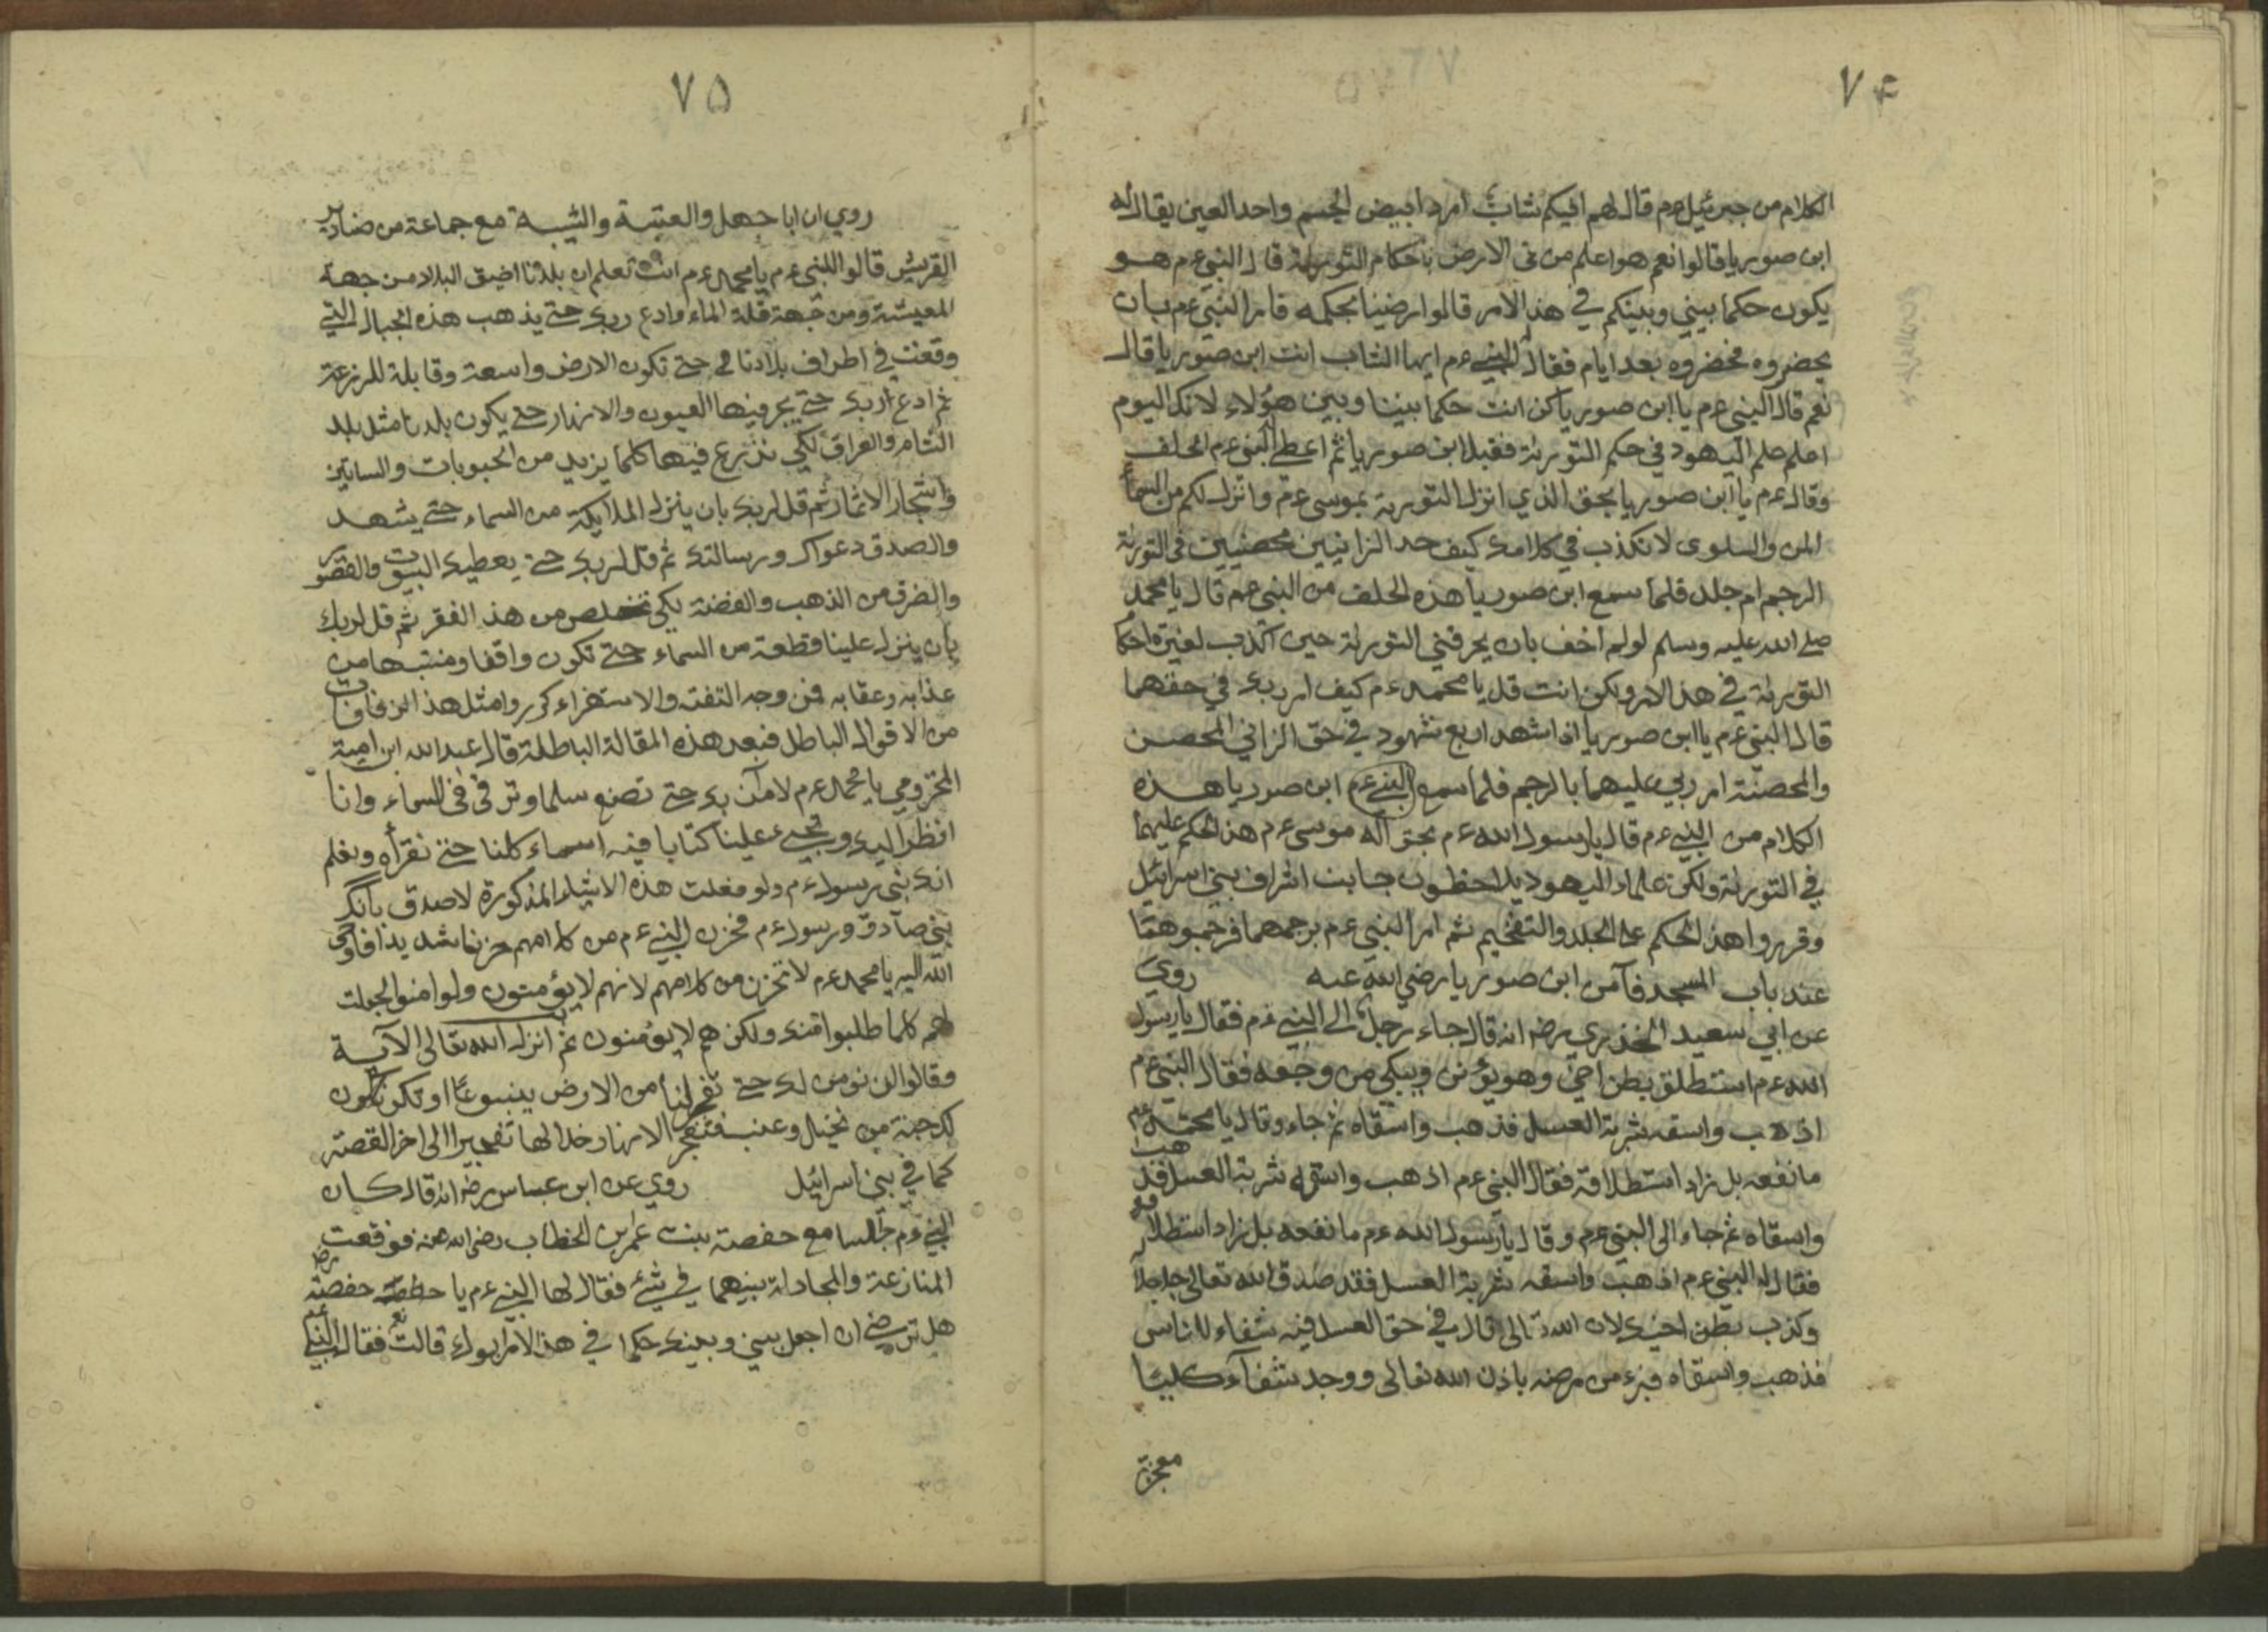 ٧۴
الكلام من جبرئيل عم قال لهم افيكم شاب امرد ابيض الجسم واحد العين يقال له
ابن صوريا قالوا نعم هو اعلم من فى الارض باحكام التورية قال النبي عم هو
يكون حكما بيني وبينكم في هذ الامر قالوا رضينا بحكمه فامر النبي عم بان
يحضروه فحضروه بعد ايام فقال النبي عم ايها الشاب انت ابن صوريا قال
نعم قال النبي عم يا ابن صوريا كن انت حكما بيننا وبين هؤلاء لانك اليوم
اعلم علم اليهود في حكم التورية فقبل ابن صوريا ثم اعطى النبي عم الحلف
وقال عم يا ابن صوريا بحق الذي انزل التورية بموسى عم وانزل لكم من السماء
المن والسلوى لا تكذب في كلامك كيف حد الزانيين محصنيين فى التورية
الرجم ام جلد فلما سمع ابن صوريا هذه الحلف من النبي عم قال يا محمد
صلى الله عليه وسلم لو لم اخف بان يحرقني التورية حين اكذب لغيرة احكا
التورية في هذ الامر ولكن انت قل يا محمد عم كيف امر ربك في حقهما
قال النبي عم يا ابن صوريا اذا شهد اربع شهود في حق الزاني المحصن
والمحصنة امر ربي عليهما بالرجم فلما سمع النبي عم ابن صوريا هذه
الكلام من النبي عم قال يا رسول الله عم بحق اله موسى عم هذ الحكم عليهما
في التورية ولكن علماء اليهود يلاحظون جانب اشراف بني اسرائيل
وقرروا هذ الحكم على الجلد والتفحيم ثم امر النبي عم برجمهما فرجموهما
عند باب المسجد فآمن ابن صوريا رضي الله عنه روي
عن ابي سعيد الخذري رضه انه قال جاء رجل الى النبي عم فقال يا رسول
الله عم استطلق بطن اخي وهو يؤنن ويبكي من وجعه فقال النبي عم
اذهب واسقه شربة العسل فذهب واسقاه ثم جاء وقال يا محمد عم
ما نفعه بل زاد استطلاقه فقال النبي عم اذهب واسقه شربة العسل فذهب
واسقاه ثم جاء الى النبي عم وقال يا رسول الله عم ما نفعه بل زاد استطلاقه
فقال له النبي عم اذهب واسقه شربة العسل فقد صدق الله تعالى
وكذب بطن اخيك لان الله تعالى قال في حق العسل فيه شفاء للناس
فذهب واسقاه فبرء من مرضه باذن الله تعالى ووجد شفآء كليا
معجزة
٧۵
روي ان ابا جهل والعتبة والشيبة مع جماعة من صناديد
القريش قالوا للنبي عم يا محمد عم انت تعلم ان بلدنا اضيق البلاد من جهة
المعيشة ومن جهة قلة الماء وادع ربك حتى يذهب هذه الجبال التي
وقعت في اطراف بلادنا حتى تكون الارض واسعة وقابلة للمزرعة
ثم ادع ربك حتى يجر فيها العيون والانهار حتى يكون بلدنا مثل بلد
الشام والعراق لكي نذرع فيها كلما يزيد من الحبوبات والبساتين
واشجار الاثمار ثم قل لربك بان ينزل الملائكة من السماء حتى يشهد
والصدق دعواك ورسالتك ثم قل لربك حتى يعطيك البيوت والقصور
والضرف من الذهب والفضة لكي تخلص من هذ الفقر ثم قل لربك
بان ينزل علينا قطعة من السماء حتى نكون واقفا ومنتبها من
عذابه وعقابه فمن وجه التفنة والاستهزاء كرروا مثل هذ
من الاقوال الباطل فبعد هذه المقالة الباطلة قال عبد الله ابن امية
المخزومي يا محمد عم لا آمن بك حتى تصنع سلما وترقى فى السماء وانا
انظر اليك وتجيء علينا كتابا فيه اسماء كلنا حتى نقرأه ونعلم
انك نبي رسول عم ولو فعلت هذه الاشياء المذكورة لا صدق بانك
نبي صادق ورسول عم فحزن النبي عم من كلامهم حزنا شديدا فاوحى
الله اليه يا محمد عم لا تحزن من كلامهم لانهم لا يؤمنون ولو امنوا لجعلت
لهم كلما طلبوا منك ولكن هم لا يؤمنون ثم انزل الله تعالى الآية
وقالوا لن نومن لك حتى تفجر لنا من الارض ينبوعا او تكون
لك جنة من نخيل وعنب فتفجر الانهار خلالها تفجيرا الى اخر القصة
كما في بني اسرائيل روي عن ابن عباس رضه انه قال كان
النبي عم جالسا مع حفصة بنت عمر بن الخطاب رضى الله عنه فوقعت
المنازعة والمجادلة بينهما في شيء فقال لها النبي عم يا حفصة رضه
هل ترضي ان اجعل بيني وبينك حكما في هذ الامر ابوك قالت نعم فقال النبي عم